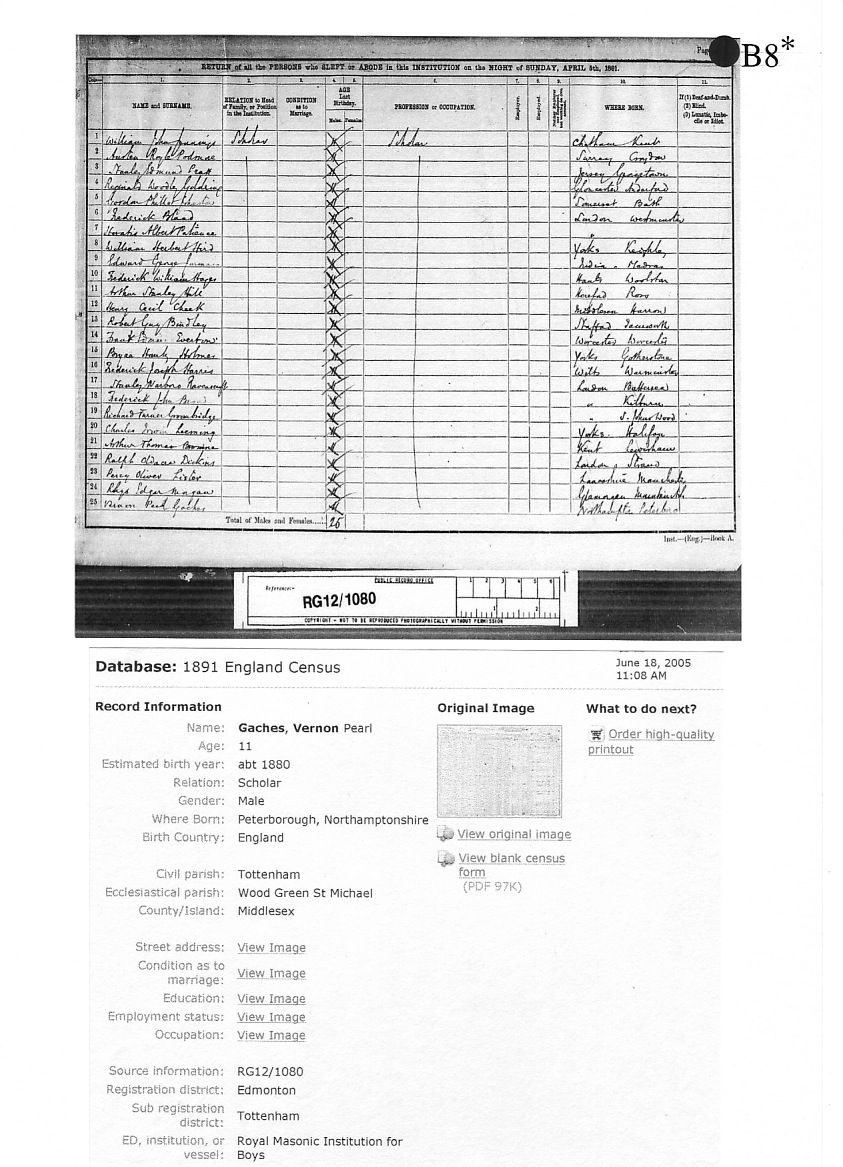 Page
B8*
RETURN of all the PERSONS who SLEPT or ABODE in this INSTITUTION on the NIGHT of SUNDAY, APRIL 5th, 1891.
1. NAME and SURNAME.
2. RELATION to Head of Family, or Position in the Institution.
3. CONDITION as to Marriage.
4. 5. AGE Last Birthday. Males. Females.
6. PROFESSION or OCCUPATION.
7. Employer.
8. Employed.
9.
10. WHERE BORN.
11. If (1) Deaf-and-Dumb. (2) Blind. (3) Lunatic, Imbecile or Idiot.
1 William John Jennings Scholar Scholar Chatham Kent
2 Surrey Croydon
3 Stanley Edmund Jersey Georgetown
4 Reginald Woodley Goldring Gloucester
5 Gordon Somerset Bath
6 Frederick London Westminster
7 Horatio Albert Patience "
8 William Herbert Hird Yorks Keighley
9 Edward George India - Madras
10 Frederick William Hayes Hants Woolston
11 Arthur Stanley Hill Hereford Ross
12 Henry Cecil Cheek Middlesex Harrow
13 Robert Guy Bindley Stafford Tamworth
14 Frank Everton Worcester Worcester
15 Bryan Holmes Yorks
16 Frederick Joseph Harris Wilts Warminster
17 Stanley London Battersea
18 Frederick John " Kilburn
19 Richard Turner Groombridge " S. Johns Wood
20 Charles Irwin Leeming Yorks. Halifax
21 Arthur Thomas Kent Lewisham
22 Ralph Dickins London, Strand
23 Percy Oliver Lister Lancashire
24 Rhys Edgar Morgan Glamorgan
25 Vernon Gaches Northampton
Total of Males and Females.... 25
Inst.—(Eng.)—Book A.
PUBLIC RECORD OFFICE
Reference:-
RG12/1080
1 2 3 4 5 6
1 2
COPYRIGHT - NOT TO BE REPRODUCED PHOTOGRAPHICALLY WITHOUT PERMISSION
Database: 1891 England Census
June 18, 2005
11:08 AM
Record Information
Name: Gaches, Vernon Pearl
Age: 11
Estimated birth year: abt 1880
Relation: Scholar
Gender: Male
Where Born: Peterborough, Northamptonshire
Birth Country: England
Civil parish: Tottenham
Ecclesiastical parish: Wood Green St Michael
County/Island: Middlesex
Street address: View Image
Condition as to
marriage: View Image
Education: View Image
Employment status: View Image
Occupation: View Image
Source information: RG12/1080
Registration district: Edmonton
Sub registration
district: Tottenham
ED, institution, or
vessel: Royal Masonic Institution for
Boys
Original Image
View original image
View blank census
form
(PDF 97K)
What to do next?
Order high-quality
printout